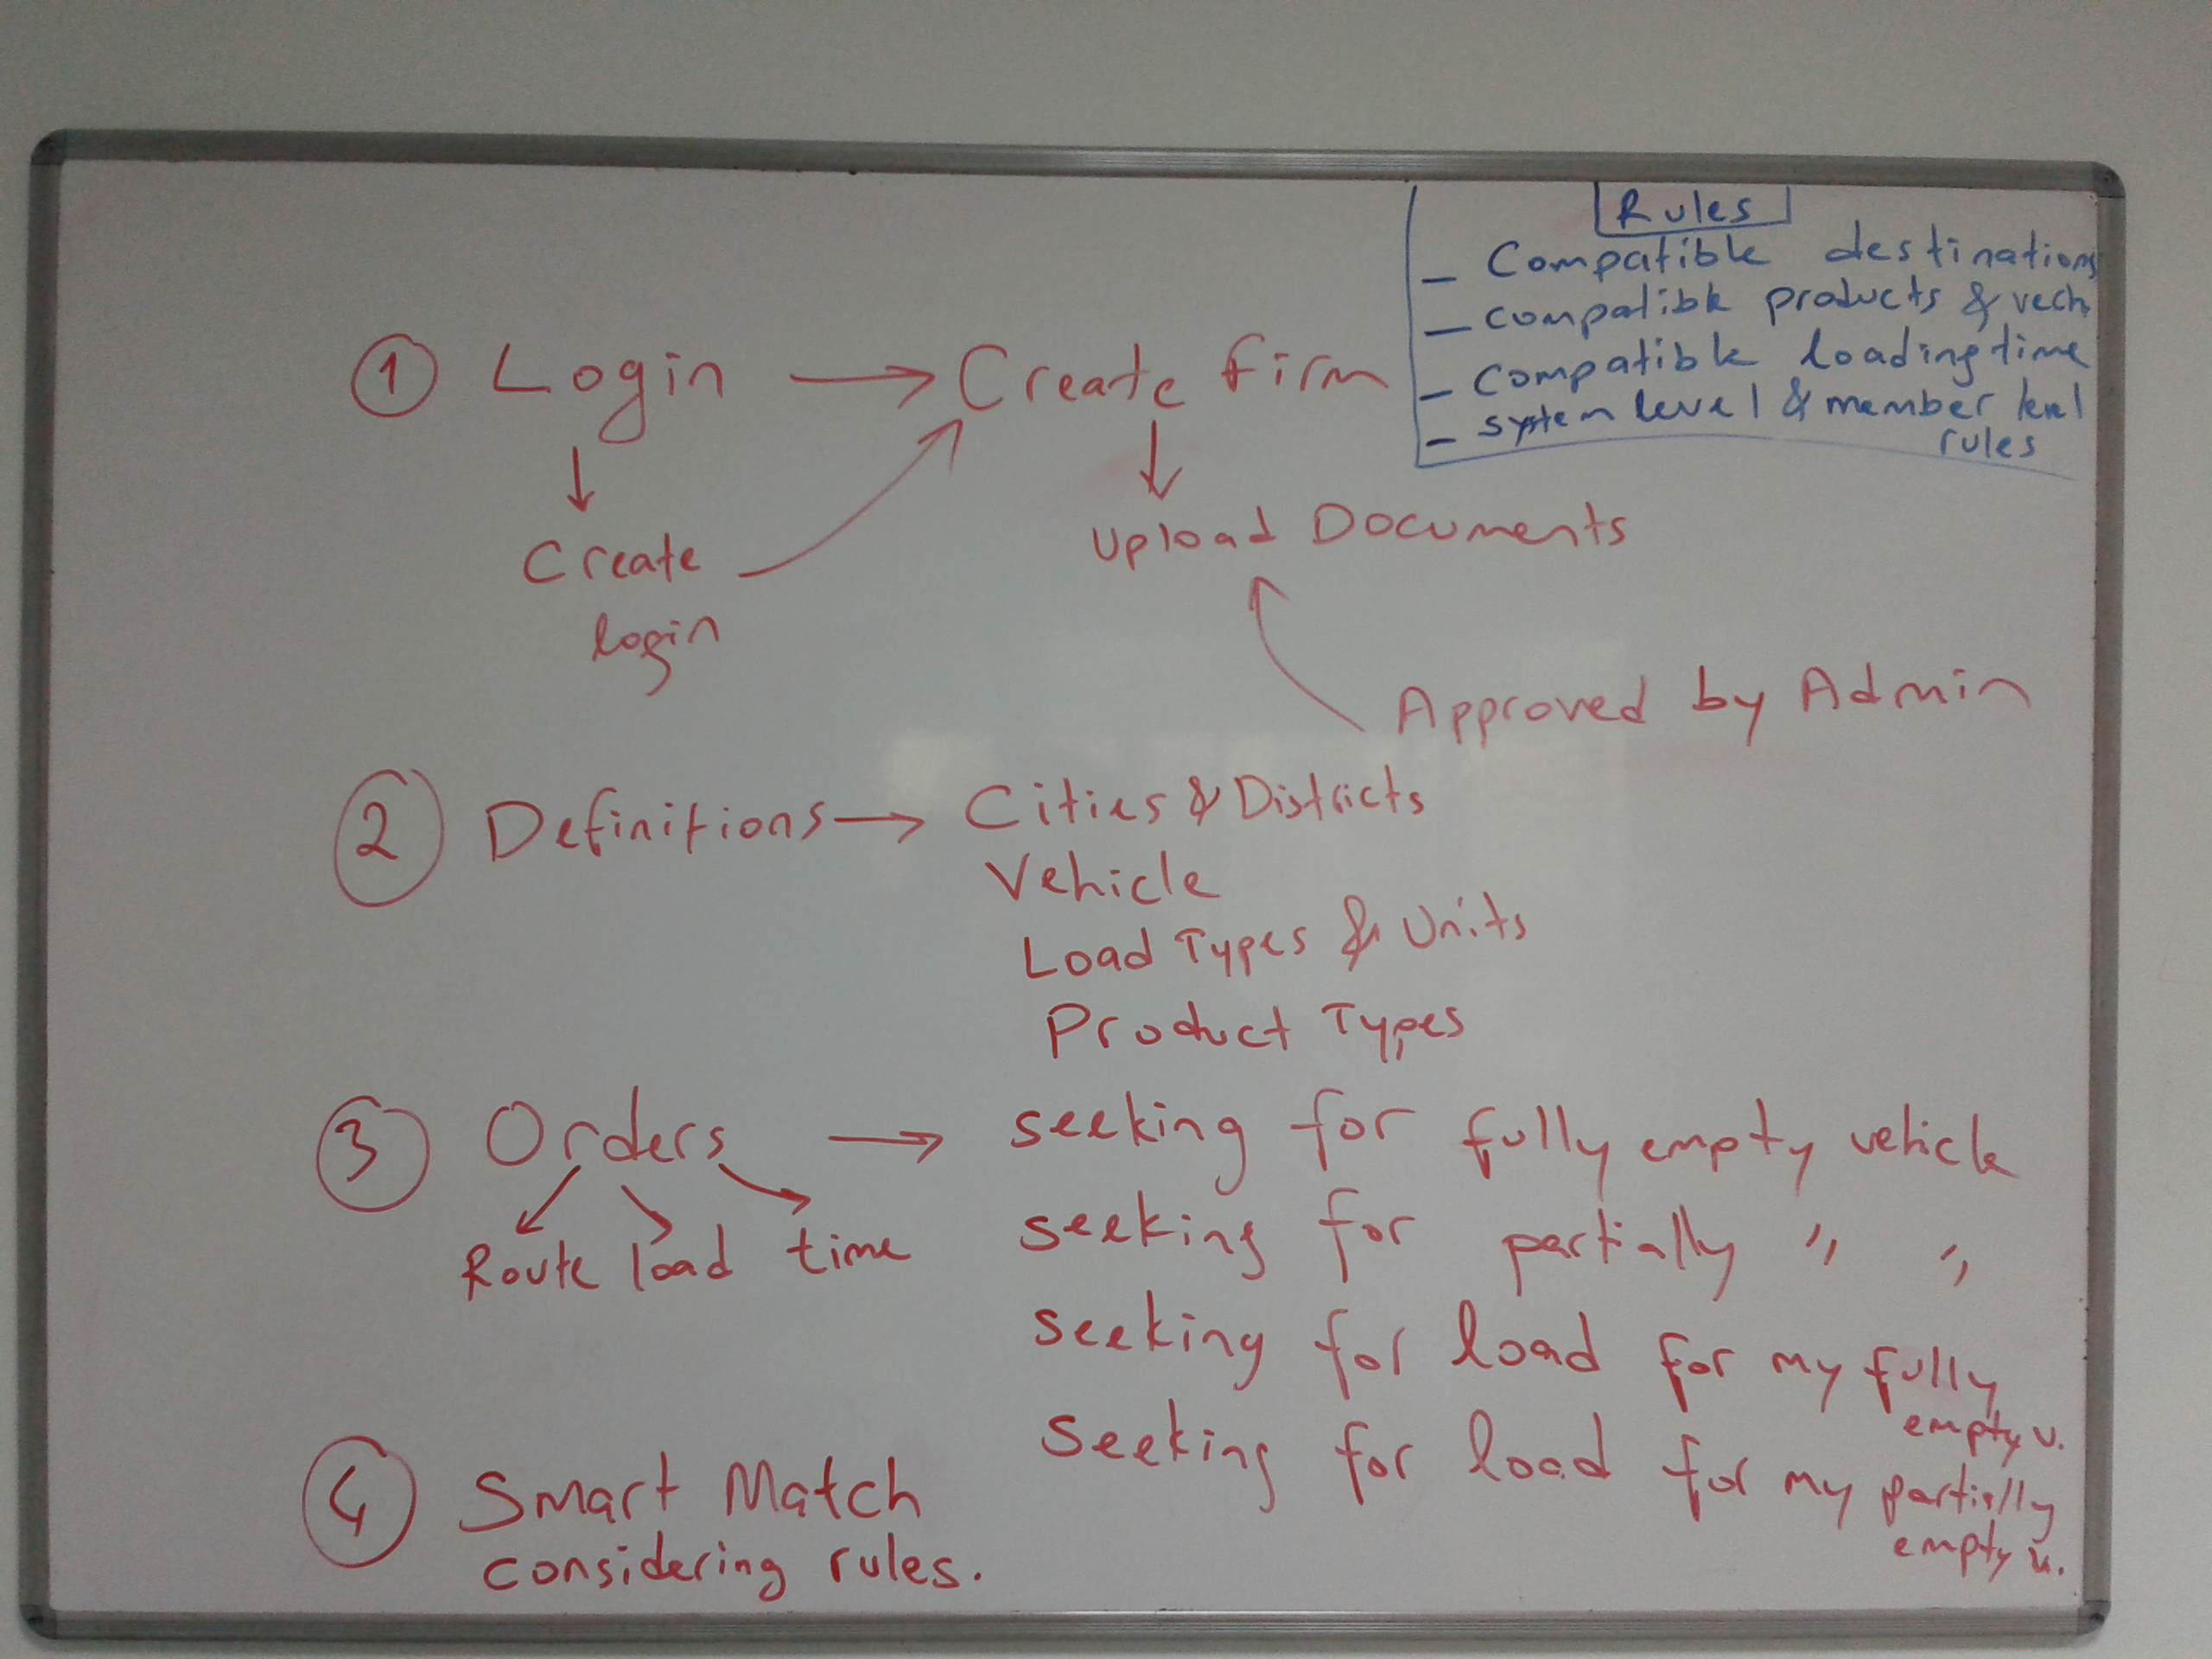 Rules
- Compatible destinations
- compatible products & vech.
- compatible loading time
- system level & member level
rules
① Login → Create firm
↓ ↓
Create
login
Upload Documents
Approved by Admin
② Definitions → Cities & Districts
Vehicle
Load Types & Units
Product Types
③ Orders → seeking for fully empty vehicle
Route load time
seeking for partially " "
seeking for load for my fully
empty v.
seeking for load for my partially
empty v.
④ Smart Match
considering rules.